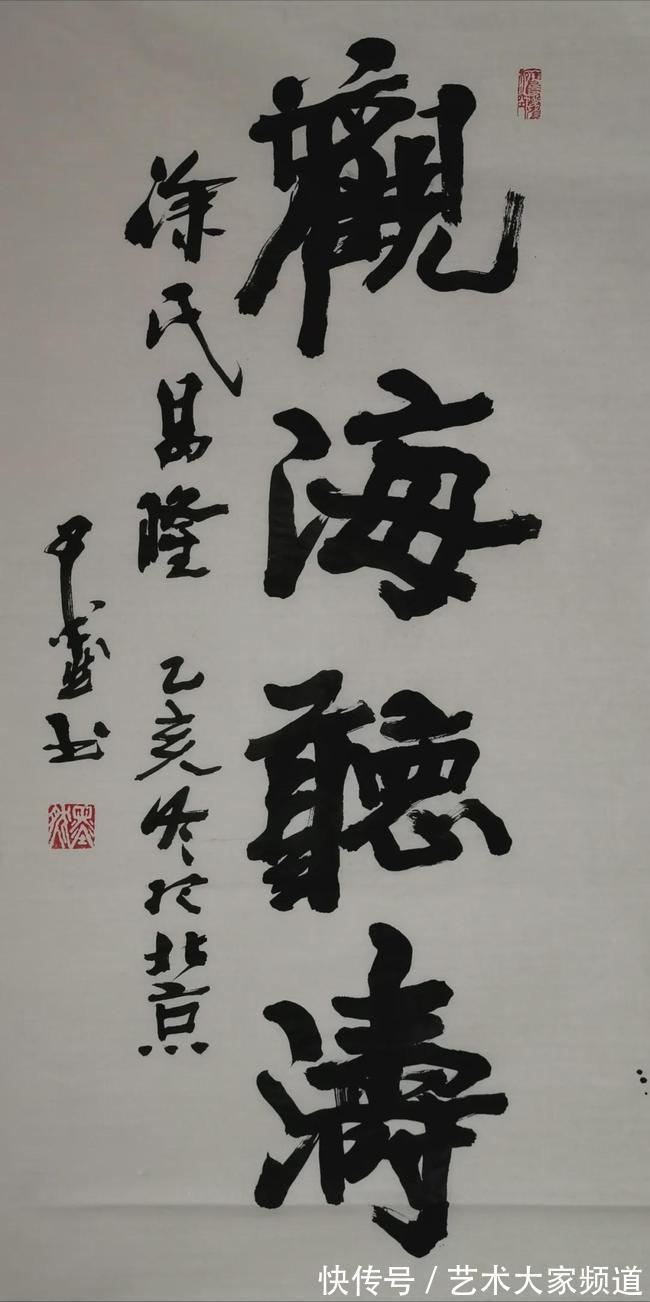 觀海聽濤
涂氏昌隆 己亥冬於北京
快传号 / 艺术大家频道